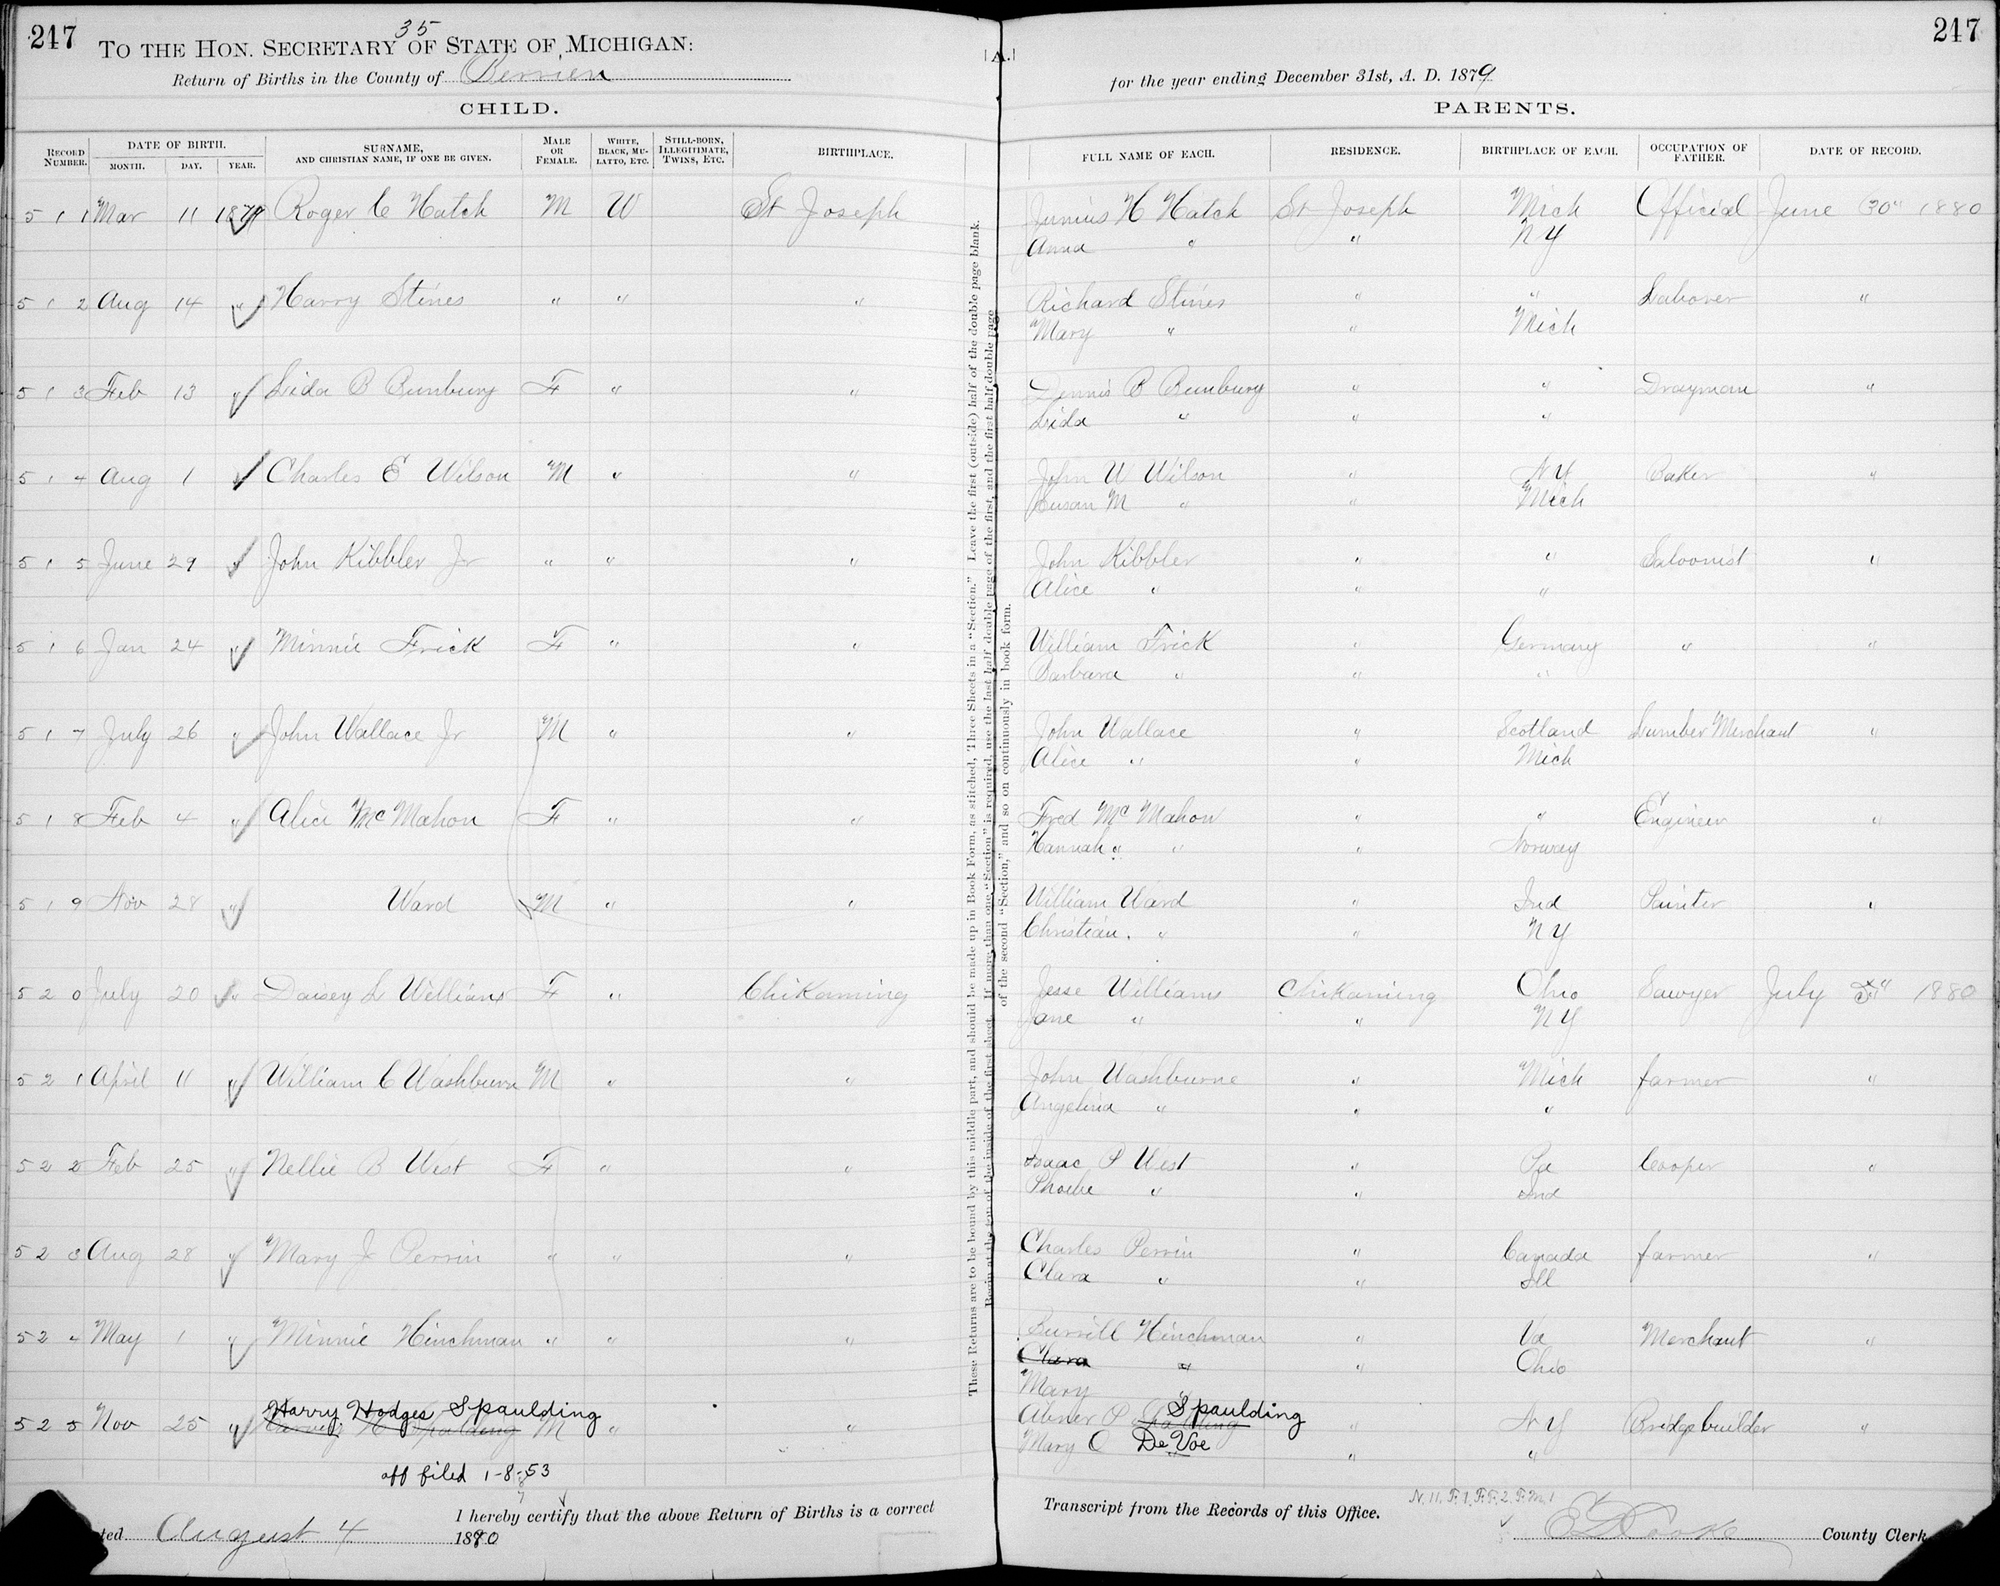 247
35
TO THE HON. SECRETARY OF STATE OF MICHIGAN:
Return of Births in the County of Berrien
CHILD.
RECORD NUMBER. DATE OF BIRTH. MONTH. DAY. YEAR. SURNAME, AND CHRISTIAN NAME, IF ONE BE GIVEN. MALE OR FEMALE. WHITE, BLACK, MULATTO, ETC. STILL-BORN, ILLEGITIMATE, TWINS, ETC. BIRTHPLACE.
511 Mar 11 1879 Roger C Hatch M W St Joseph
512 Aug 14 " Harry Stines " " "
513 Feb 13 " Lida B Bunbury F " "
514 Aug 1 " Charles E Wilson M " "
515 June 29 " John Kibbler Jr " " "
516 Jan 24 " Minnie Frick F " "
517 July 26 " John Wallace Jr M " "
518 Feb 4 " Alice McMahon F " "
519 Nov 28 " Ward M " "
520 July 20 " Daisey L Williams F " Chikaming
521 April 11 " William C Washburn M " "
522 Feb 25 " Nellie B West F " "
523 Aug 28 " Mary J Perrin " " "
524 May 1 " Minnie Hinchman " " "
Harry Hodges Spaulding
525 Nov 25 " H Spalding M " "
aff filed 1-8-53
I hereby certify that the above Return of Births is a correct
ted August 4 1880
These Returns are to be bound by this middle part, and should be made up in Book Form, as stitched, Three Sheets in a "Section." Leave the first (outside) half of the double page blank.
Begin at the top of the inside of the first sheet. If more than one "Section" is required, use the last half double page of the first, and the first half double page
of the second "Section," and so on continuously in book form.
A.
247
for the year ending December 31st, A. D. 1879
PARENTS.
FULL NAME OF EACH. RESIDENCE. BIRTHPLACE OF EACH. OCCUPATION OF FATHER. DATE OF RECORD.
Junius H Hatch St Joseph Mich Official June 30" 1880
Anna " " NY
Richard Stines " " Laborer "
Mary " " Mich
Dennis B Bunbury " " Drayman "
Lida " " "
John W Wilson " NY Baker "
Susan M " " Mich
John Kibbler " " Saloonist "
Alice " " "
William Frick " Germany " "
Barbara " " "
John Wallace " Scotland Lumber Merchant "
Alice " " Mich
Fred McMahon " " Engineer "
Hannah " " " Norway
William Ward " Ind Painter "
Christian. " " NY
Jesse Williams Chikaming Ohio Sawyer July 5" 1880
Jane " " NY
John Washburne " Mich farmer "
Angelina " " "
Isaac P West " Pa Cooper "
Phoebe " " Ind
Charles Perrin " Canada farmer "
Clara " " Ill
Burrill Hinchman " Va Merchant "
Clara " " Ohio
Mary
Abner P Spalding Spaulding " NY Bridge builder "
Mary O De Voe " "
Transcript from the Records of this Office.
N. 11. F. 1. F.F. 2. F.M. 1
County Clerk